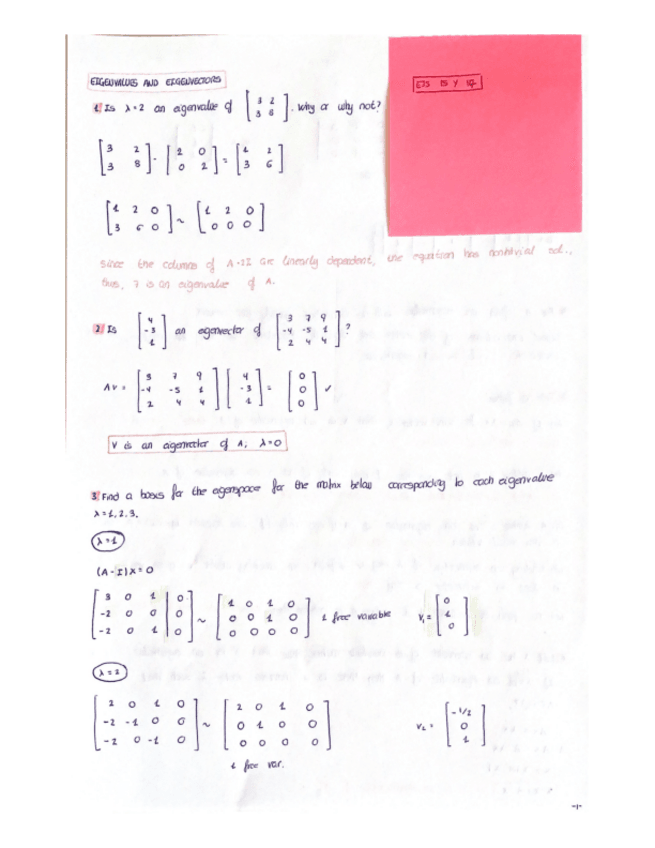 EIGENVALUES AND EIGENVECTORS
EJS 15 Y 17
1. Is λ=2 an eigenvalue of [3 2; 3 8]. Why or why not?
[3 2; 3 8] - [2 0; 0 2] = [1 2; 3 6]
[1 2 0; 3 6 0] ~ [1 2 0; 0 0 0]
Since the columns of A-2I are linearly dependent, the equation has nontrivial sol.,
thus, 2 is an eigenvalue of A.
2. Is [4; -3; 1] an eigenvector of [3 7 9; -4 -5 1; 2 4 4]?
AV = [3 7 9; -4 -5 1; 2 4 4] [4; -3; 1] = [0; 0; 0] ✓
V is an eigenvector of A, λ=0
3. Find a basis for the eigenspace for the matrix below corresponding to each eigenvalue
λ=1,2,3.
λ=1
(A-I)X=0
[3 0 1 0; -2 0 0 0; -2 0 1 0] ~ [1 0 1 0; 0 0 1 0; 0 0 0 0] 1 free variable V₁= [0; 1; 0]
λ=2
[2 0 1 0; -2 -1 0 0; -2 0 -1 0] ~ [2 0 1 0; 0 1 0 0; 0 0 0 0] V₂= [-1/2; 0; 1]
1 free var.
-1-